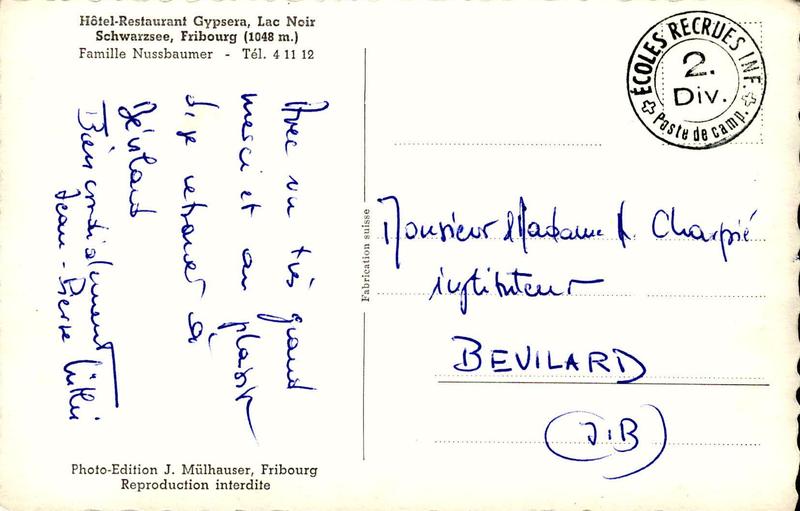 Hôtel-Restaurant Gypsera, Lac Noir
Schwarzsee, Fribourg (1048 m.)
Famille Nussbaumer - Tél. 4 11 12
Avec un très grand
merci et au plaisir
de se retrouver à
Bévilard
Bien cordialement
Jean-Pierre
Photo-Edition J. Mülhauser, Fribourg
Reproduction interdite
Fabrication suisse
ÉCOLES RECRUES INF.
2.
Div.
Poste de camp.
Monsieur Madame Charpié
instituteur
BEVILARD
J.B